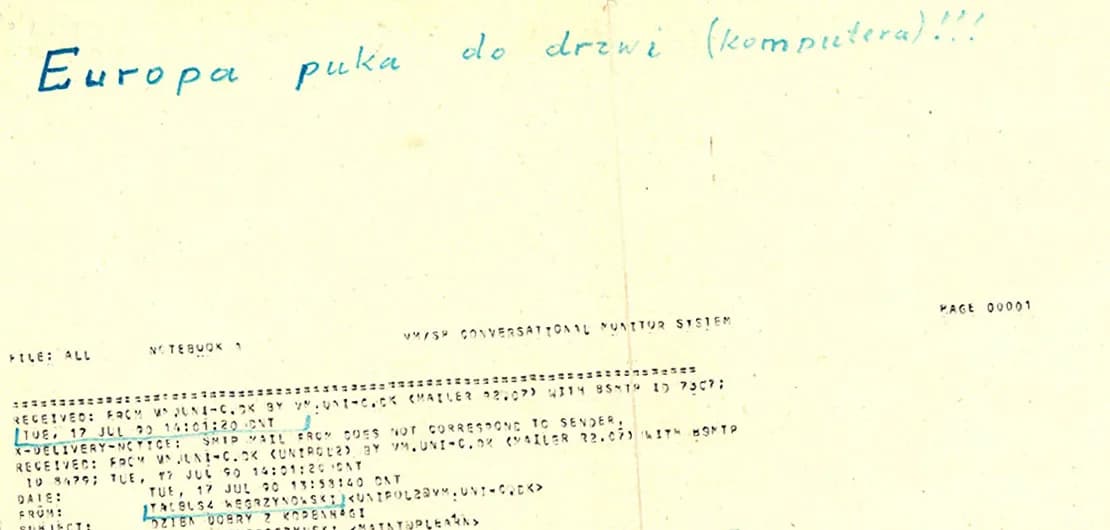 Europa puka do drzwi (komputera)!!!
PAGE 00001
FILE: ALL NOTEBOOK VM/SP CONVERSATIONAL MONITOR SYSTEM
RECEIVED: FROM VM.UNI-C.DK BY VM.UNI-C.DK (MAILER R2.07) WITH BSMTP ID
TUE, 17 JUL 90 14:01:20 DNT
X-DELIVERY-NOTICE: SMTP MAIL FROM DOES NOT CORRESPOND TO SENDER.
RECEIVED: FROM VM.UNI-C.DK (UNIPOL2) BY VM.UNI-C.DK (MAILER R2.07) WITH BSMTP
ID 8479; TUE, 17 JUL 90 14:01:20 DNT
DATE: TUE, 17 JUL 90 13:53:40 DNT
FROM: WEGRZYNOWSKI <UNIPOL2@VM.UNI-C.DK>
SUBJECT: DZIEN DOBRY Z KOPENHAGI